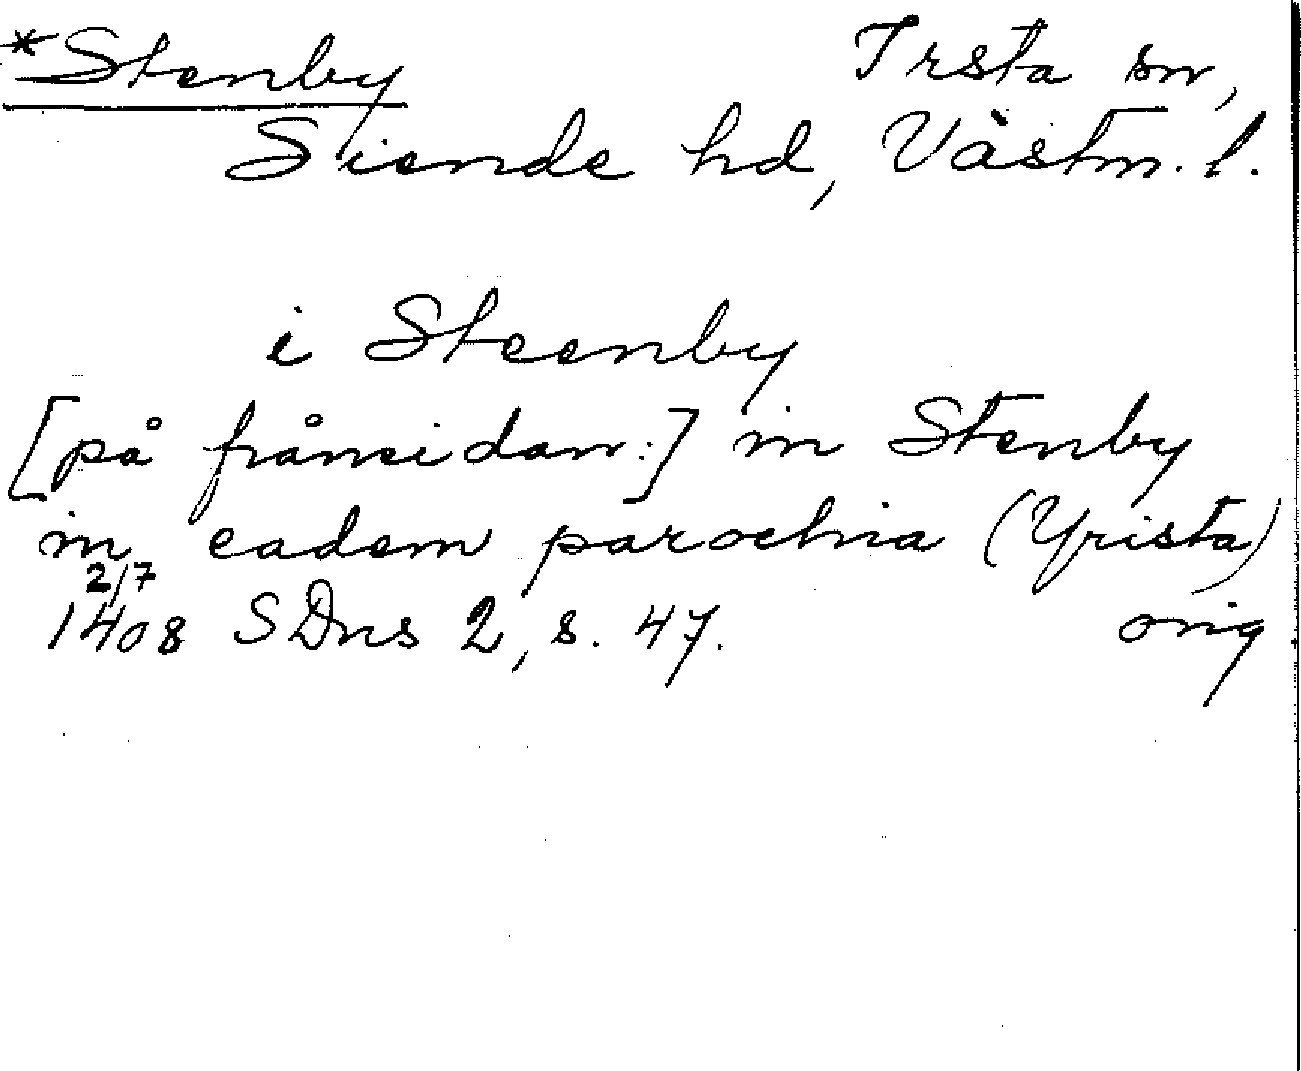 *Stenby Irsta sn,
Siende hd, Västm. l.
i Steenby
[på frånsidan:] in Stenby
in eadem parochia (Yrista)
2/7
1408 SDns 2, s. 47. orig.